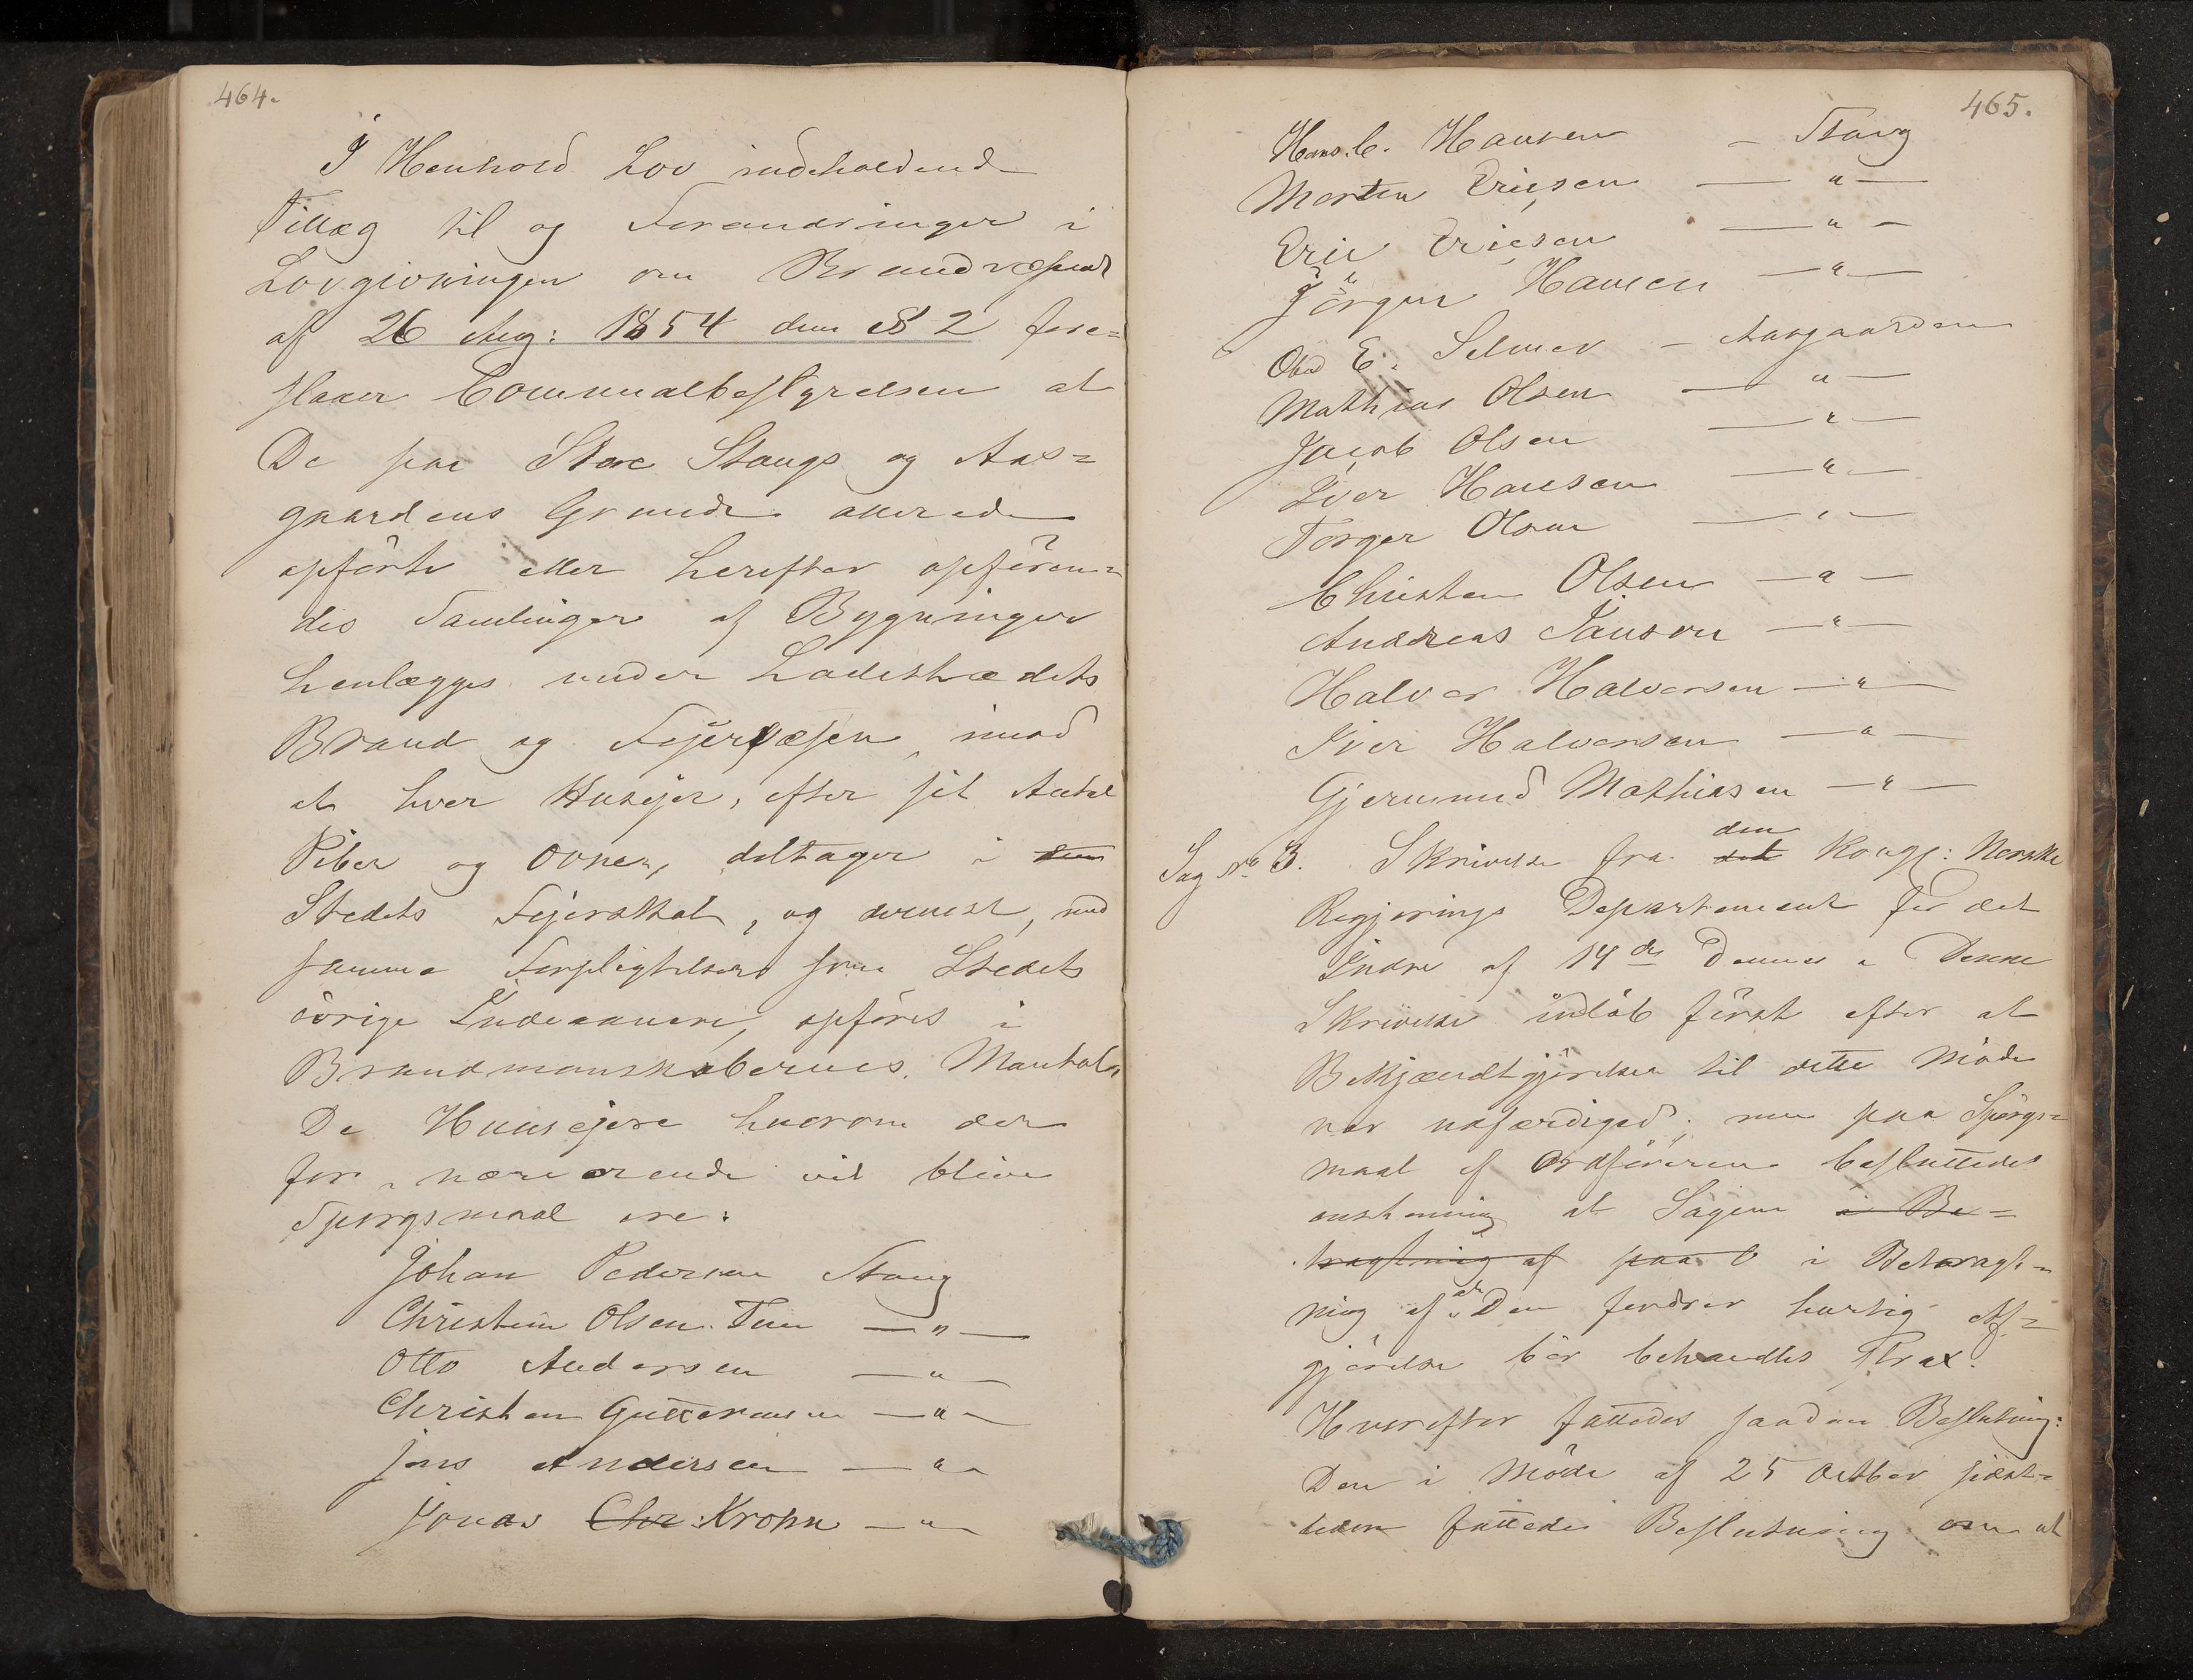 464.
I Henhold Lov indeholdende
Tillæg til og Forandringer i
Lovgivningen om Brandvæsenet
af 26 Aug: 1854 dens § 2 fore=
slaaer Communalbestyrelsen at
De paa Store Stangs og Aas=
gaardens Grunde allerede
opförte eller herefter opfören=
des Samlinger af Bygninger
henlægges under Ladestædets
Brand og Fejervæsen, imod
at hver Huusejer, efter sit Antal
Piber og Ovner, deltager i dem
Stedets Fejerskat, og dernest, med
samme Forpligtelser som Stedets
övrige Indvaanere, opföres i
Brandmanskabernes Mantal.
De Huusejere hvorom der
for nærværende vil blive
Spörgsmaal ere:
Johan Pedersen Stang
Christian Olsen Tun — " —
Otto Andersen — " —
Christen Guttormsen — " —
Jens Andersen — " —
Jonas Chr. Krohn — " —
465.
Hans C. Hansen — Stang
Morten Ericsen — " —
Eric Ericsen — " —
Jörgen Hansen — " —
Olad E. Selmer — Aasgaarden
Mathias Olsen — " —
Jacob Olsen — " —
Iver Hansen — " —
Torger Olsen — " —
Christen Olsen — " —
Andreas Jansen — " —
Halvor Halvorsen — " —
Iver Halvorsen — " —
Gjermund Mathiasen — " —
Sag No 3. Skrivelse fra det den Kongl: Norske
Regjerings Departement for det
Indre af 14de Dennes. Denne
Skrivelse indlöb först efter at
Bekjendtgjörelsen til dette Möde
var udfærdiget; men paa Spörgs=
maal af Ordföreren besluttedes
enstemmig at Sagen i Be=
tragtning af paa O i Betragt=
ning af at Den fordrer hurtig Af=
gjörelse bör behandles strax.
Hvorefter fattedes saadan Beslutning:
Den i Möde af 25 Octber sidst=
leden fattede Beslutning om at